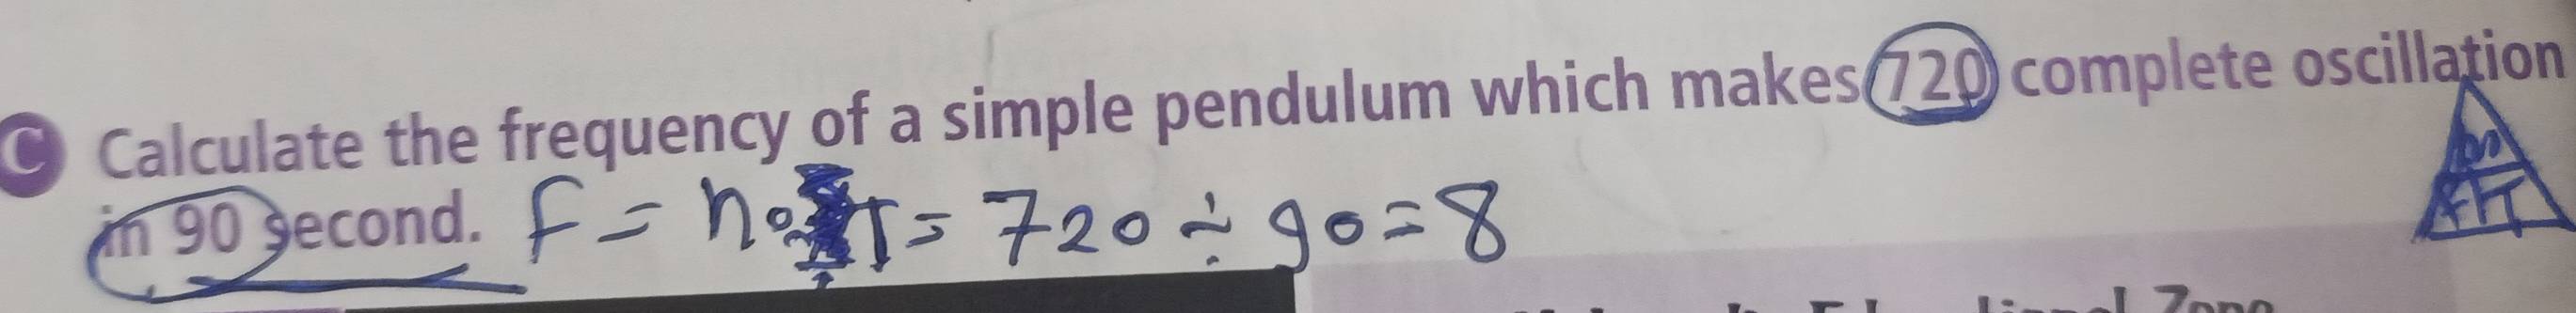 C Calculate the frequency of a simple pendulum which makes 720 complete oscillation
in 90 second. F = no ÷ T = 720 ÷ 90 = 8
no
F T
Zone